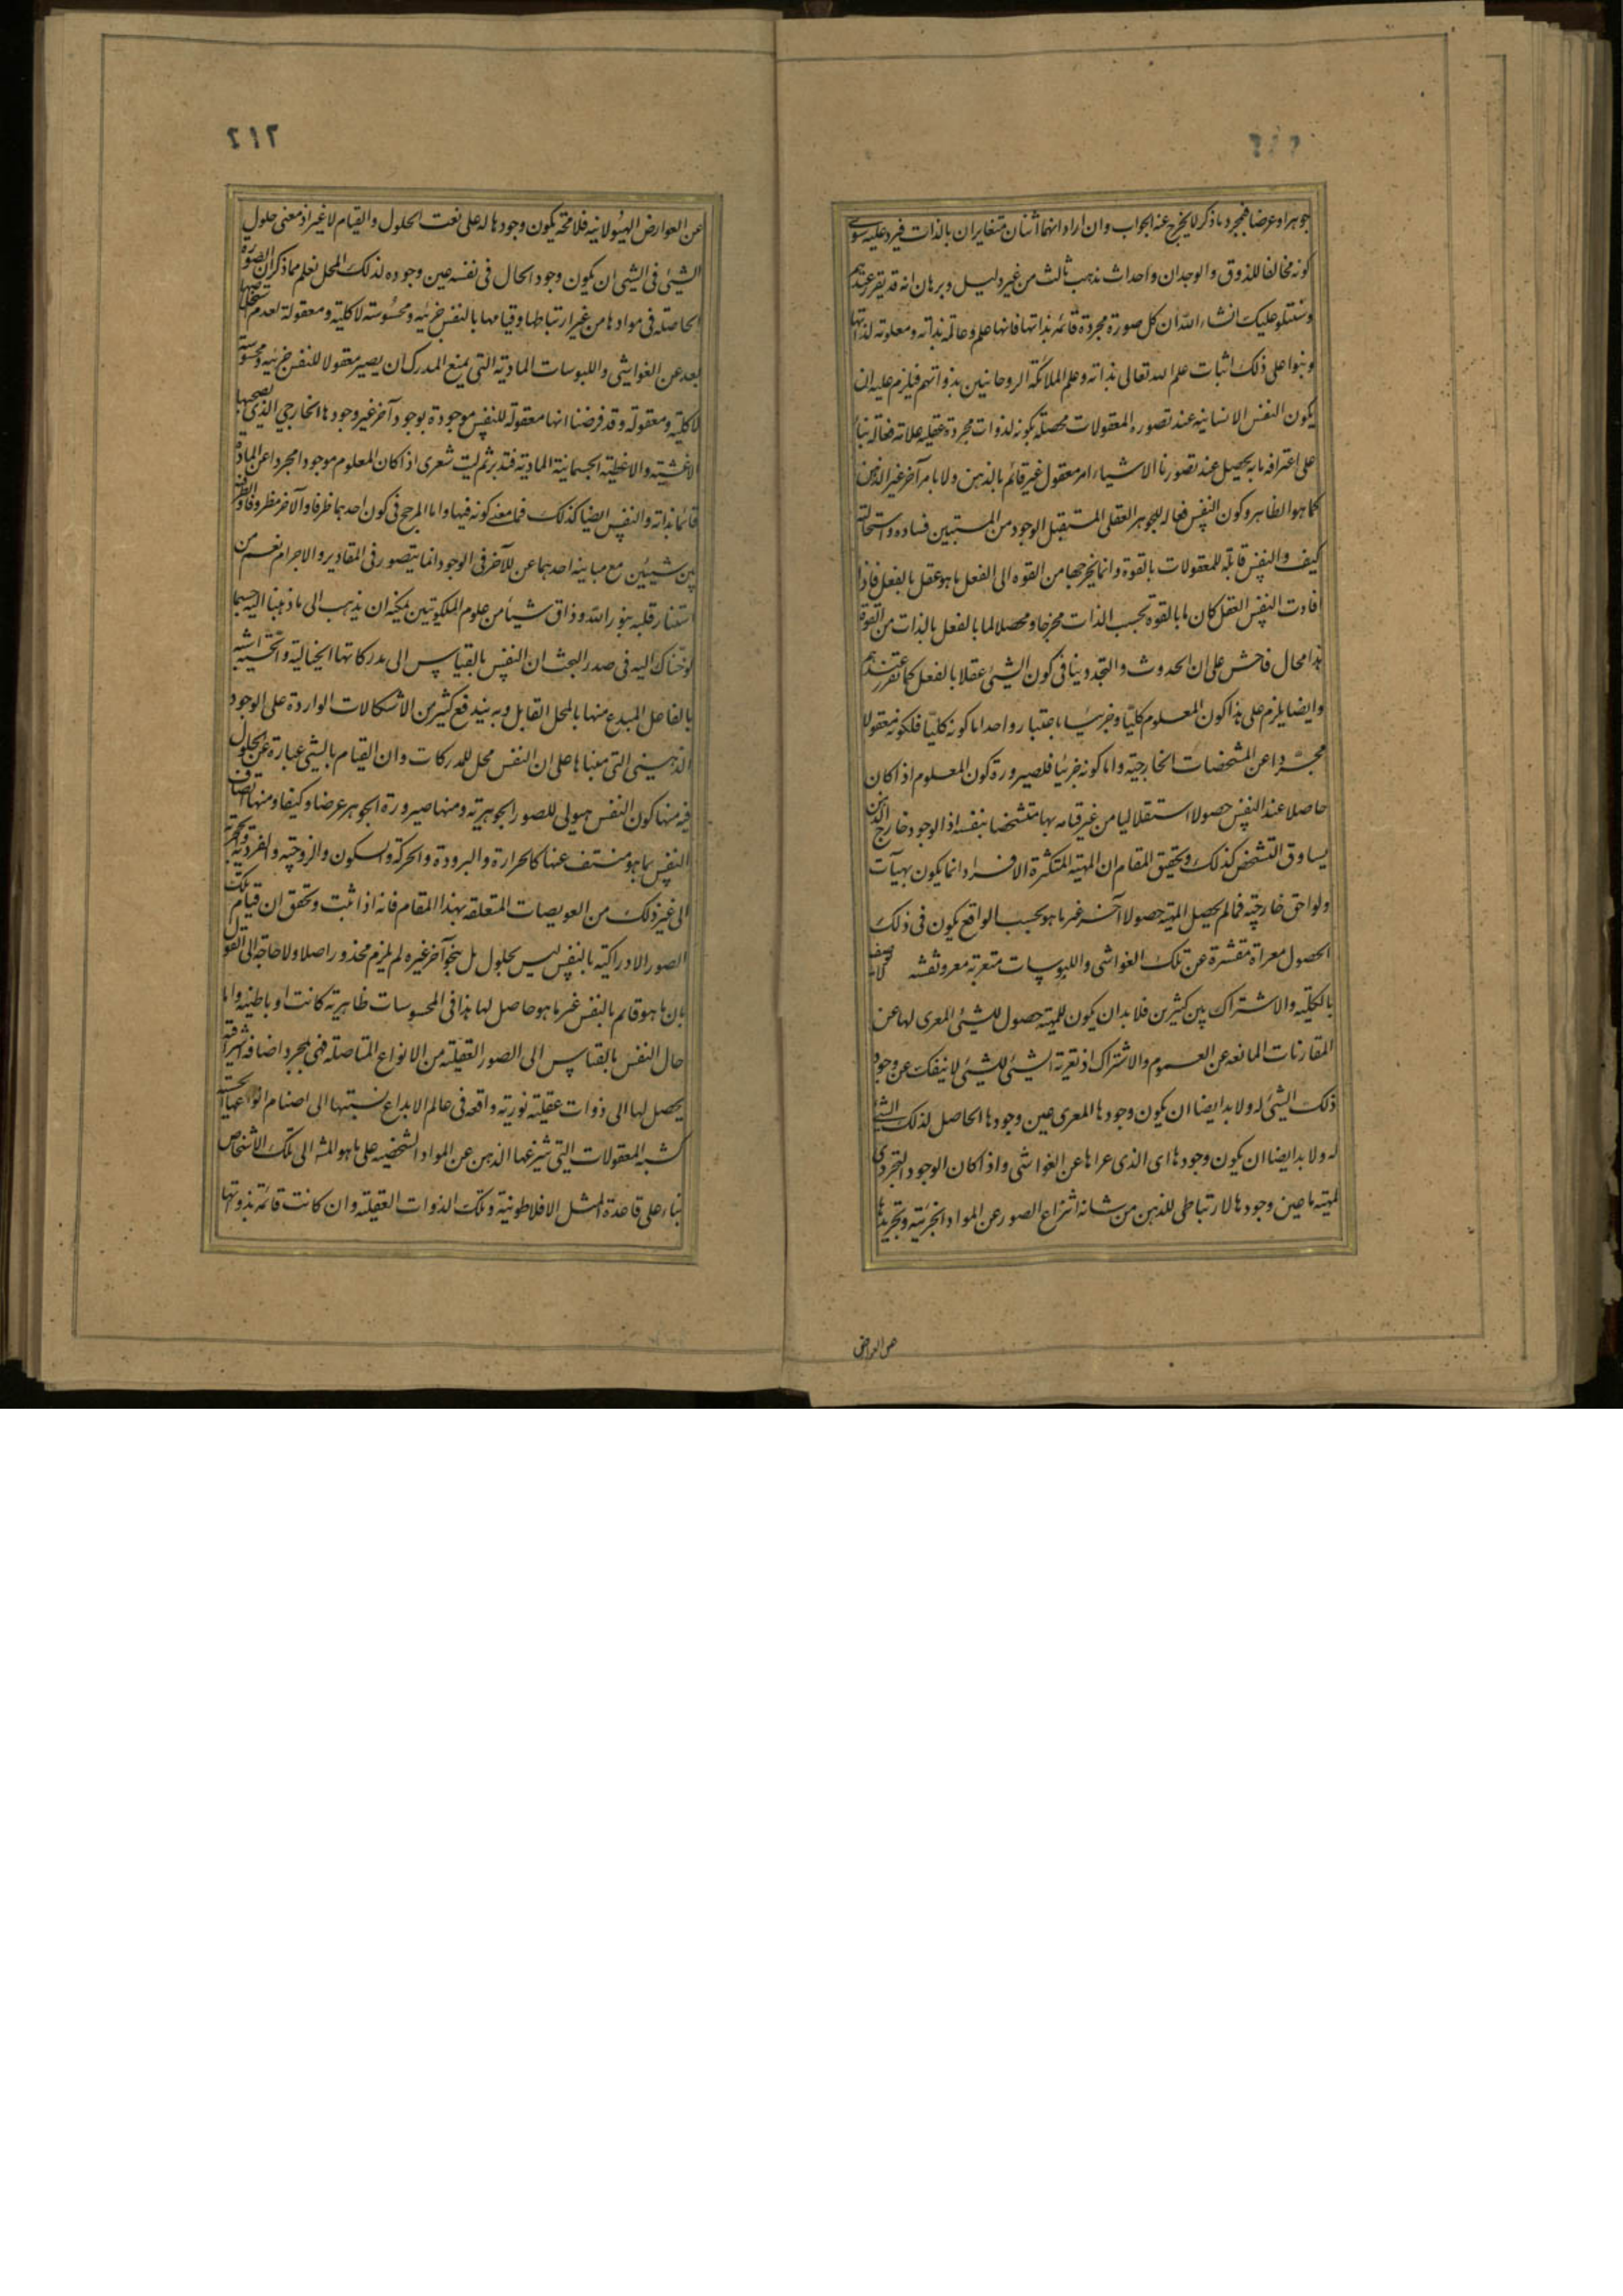 جوهرا وعرضا فبمجرد ما ذكر لا يخرج عنه الجواب وان اراد انهما اثنان متغايران بالذات فيرد عليه سوى
كونه مخالفا للذوق والوجدان واحداث مذهب ثالث من غير دليل وبرهان انه قد يقرر عندهم
وسنتلو عليك انشاء الله ان كل صورة مجردة قائمة بذاتها فانها علم وعالمة بذاته ومعلومة لذاتها
وبنوا على ذلك اثبات علم الله تعالى بذاته وعلم الملائكة الروحانيين بذواتهم فيلزم عليه ان
يكون النفس الانسانية عند تصوره المعقولات محصلة مكونة لذوات مجردة عقلية علامة فعالة بناء
على اعترافه بانه يحصل عند تصورنا الاشياء امر معقول غير قائم بالذهن ولا بامر آخر غير الذهن
كما هو الظاهر وكون النفس فعالة للجوهر العقلى المستقبل الوجود من المستبين فساده واستحالته
كيف والنفس قابلة للمعقولات بالقوة وانما يخرجها من القوة الى الفعل ما هو عقل بالفعل فاذا
افادت النفس العقل كان ما بالقوة بحسب الذات مخرجا ومحصلا لما بالفعل بالذات من القوة
هذا محال فاحش على ان الحدوث والتجدد ينافى كون الشىء عقلا بالفعل كما تقرر عندهم
وايضا يلزم على هذا كون المعلوم كليا وجزئيا باعتبار واحد اما كونه كليا فلكونه معقولا
مجردا عن المشخصات الخارجية واما كونه جزئيا فلصيرورة كون المعلوم اذ اكان
حاصلا عند النفس حصولا استقلاليا من غير قيامه بها متشخصا بنفسه اذ الوجود خارج الذهن
يساوق التشخص كذلك وتحقيق المقام ان المهية المتكثرة الافراد انما يكون بهيآت
ولواحق خارجية فما لم يحصل المهية حصولا آخر غير ما هو بحسب الواقع يكون فى ذلك
الحصول معراة مقشرة عن تلك الغواشى واللبوسات متعرية معروفشه لا يتصف
بالكلية والاشتراك بين كثيرين فلا بد ان يكون للمهية حصول للشىء المعرى لها عن
المقارنات المانعة عن العموم والاشتراك اذ تعرية الشىء للشىء لا ينفك عن وجود
ذلك الشىء له ولا بد ايضا ان يكون وجودها المعرى عين وجودها الحاصل لذلك الشىء
له ولا بد ايضا ان يكون وجودها اى الذى عراها عن الغواشى واذ اكان الوجود التجردى
لمهية ما عين وجودها الارتباطى للذهن من شانه انتزاع الصور عن المواد الجزئية وتجريدها
٢١٢
عن العوارض الهيولانية فلا محة يكون وجودها له على نعت الحلول والقيام لا غير اذ معنى حلول
الشىء فى الشىء ان يكون وجود الحال فى نفسه عين وجوده لذلك المحل نعلم مما ذكر ان الصورة
الحاصلة فى موادها من غير ارتباطها وقيامها بالنفس جزئية ومحسوسة لا كلية ومعقولة لعدم
بعد عن الغواشى واللبوسات المادية التى يمنع المدرك ان يصير معقولا للنفس جزئية ومحسوسة
لا كلية ومعقولة وقد فرضنا انها معقولة للنفس موجودة بوجود آخر غير وجودها الخارجى الذى يصحبها
الاغشية والاغطية الجسمانية المادية فتدبر ثم ليت شعرى اذ اكان المعلوم موجودا مجردا عن المادة
قائما بذاته والنفس ايضا كذلك فما معنى كونه فيها واما المرجح فى كون احدهما ظرفا والآخر مظروفا والظرفية
بين شيئين مع مباينة احدهما عن للآخر فى الوجود انما يتصور فى المقادير والاجرام نعم من
استنار قلبه بنور الله وذاق شيئا من علوم الملكوتيين يمكنه ان يذهب الى ما ذهبنا اليه حسبما
لوحناك اليه فى صدر البحث ان النفس بالقياس الى مدركاتها الخيالية والحسية اشبه
بالفاعل المبدع منها بالمحل القابل وبه يندفع كثير من الاشكالات الواردة على الوجود
الذهنى التى مبناها على ان النفس محل للمدركات وان القيام بالشىء عبارة عن الحلول
فيه منها كون النفس هيولى للصور الجوهرية ومنها صيرورة الجوهر عرضا وكيفا ومنها اتصاف
النفس بما هو منتف عنها كالحرارة والبرودة والحركة والسكون والزوجية والفردية
الى غير ذلك من العويصات المتعلقة بهذا المقام فانه اذا ثبت وتحقق ان قيام تلك
الصور الادراكية بالنفس ليس بحلول بل بنحو آخر غيره لم يلزم محذور اصلا ولا حاجة الى القول
بان ما هو قائم بالنفس غير ما هو حاصل لها هذا فى المحسوسات ظاهرية كانت او باطنية واما
حال النفس بالقياس الى الصور العقلية من الانواع المتاصلة فهى بمجرد اضافة اشراقية
يحصل لها الى ذوات عقلية نورية واقعة فى عالم الابداع نسبتها الى اصنام انواعها الحسية
كنسبة المعقولات التى ينتزعها الذهن عن المواد الشخصية على ما هو المشه الى تلك الاشخاص
بناء على قاعدة المثل الافلاطونية وتلك الذوات العقلية وان كانت قائمة بذوتها
عن العوارض